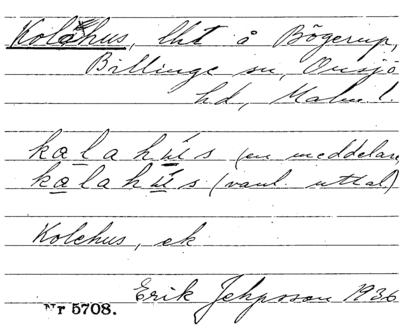 Kolahus, lht å Bögerup,
Billinge sn, Onsjö
hd, Malm. l.
kalahús (en meddelare)
kalahús (vanl. uttal)
Kolehus, ek
Erik Jeppsson 1936
Nr 5708.